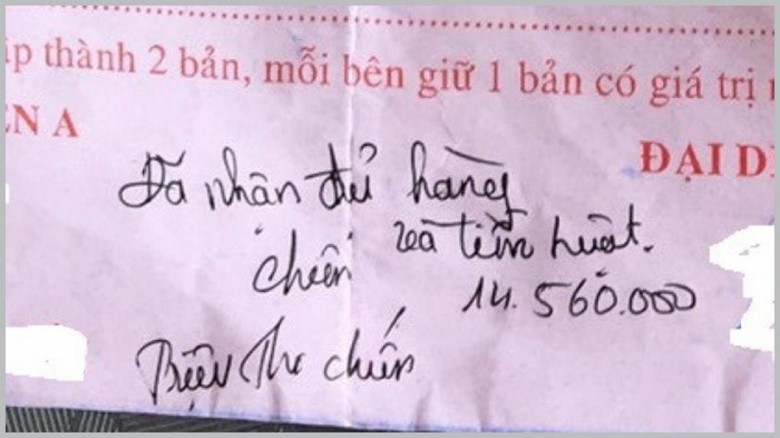 ập thành 2 bản, mỗi bên giữ 1 bản có giá trị
ÊN A
ĐẠI D
Đã nhận đủ hàng
và tiền
chiến
14.560.000
Triệu Thị chiến